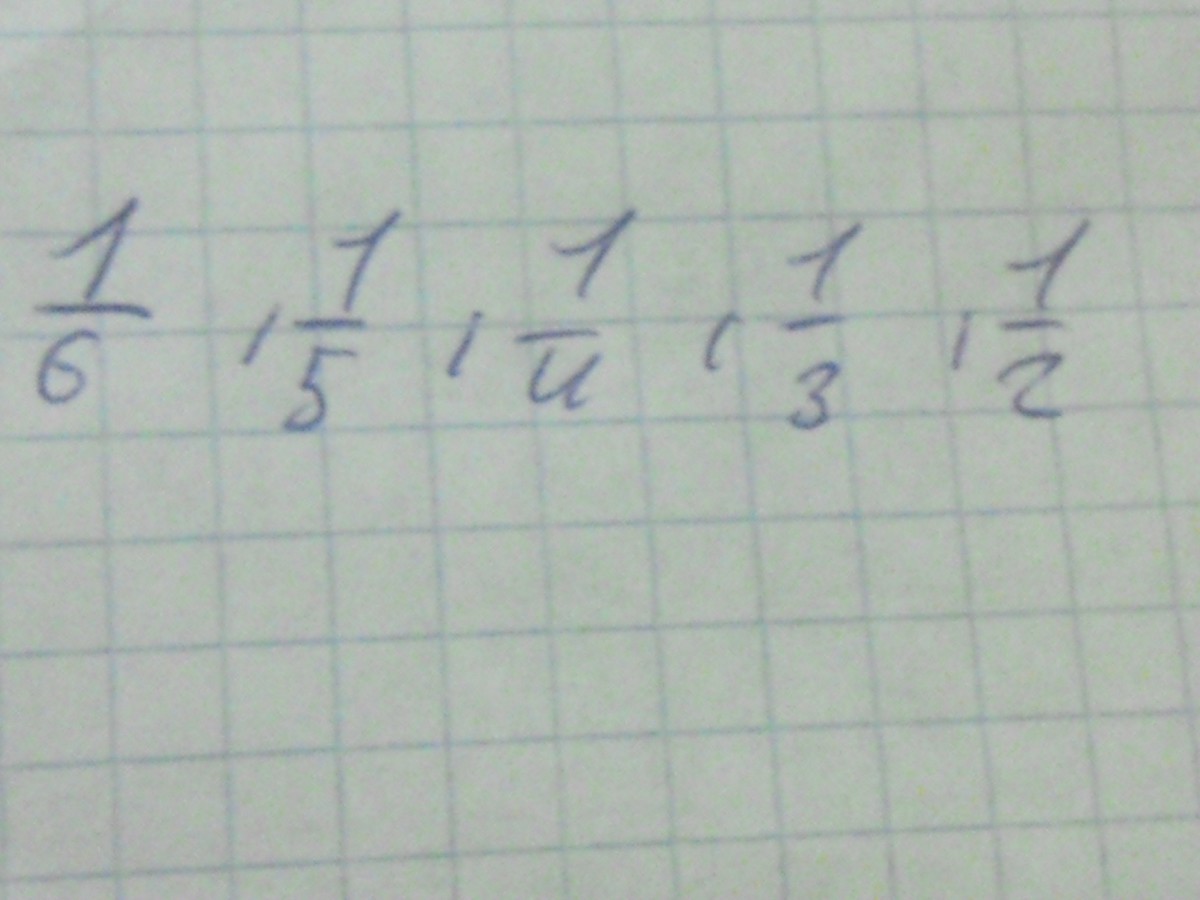 1/6, 1/5, 1/4, 1/3, 1/2